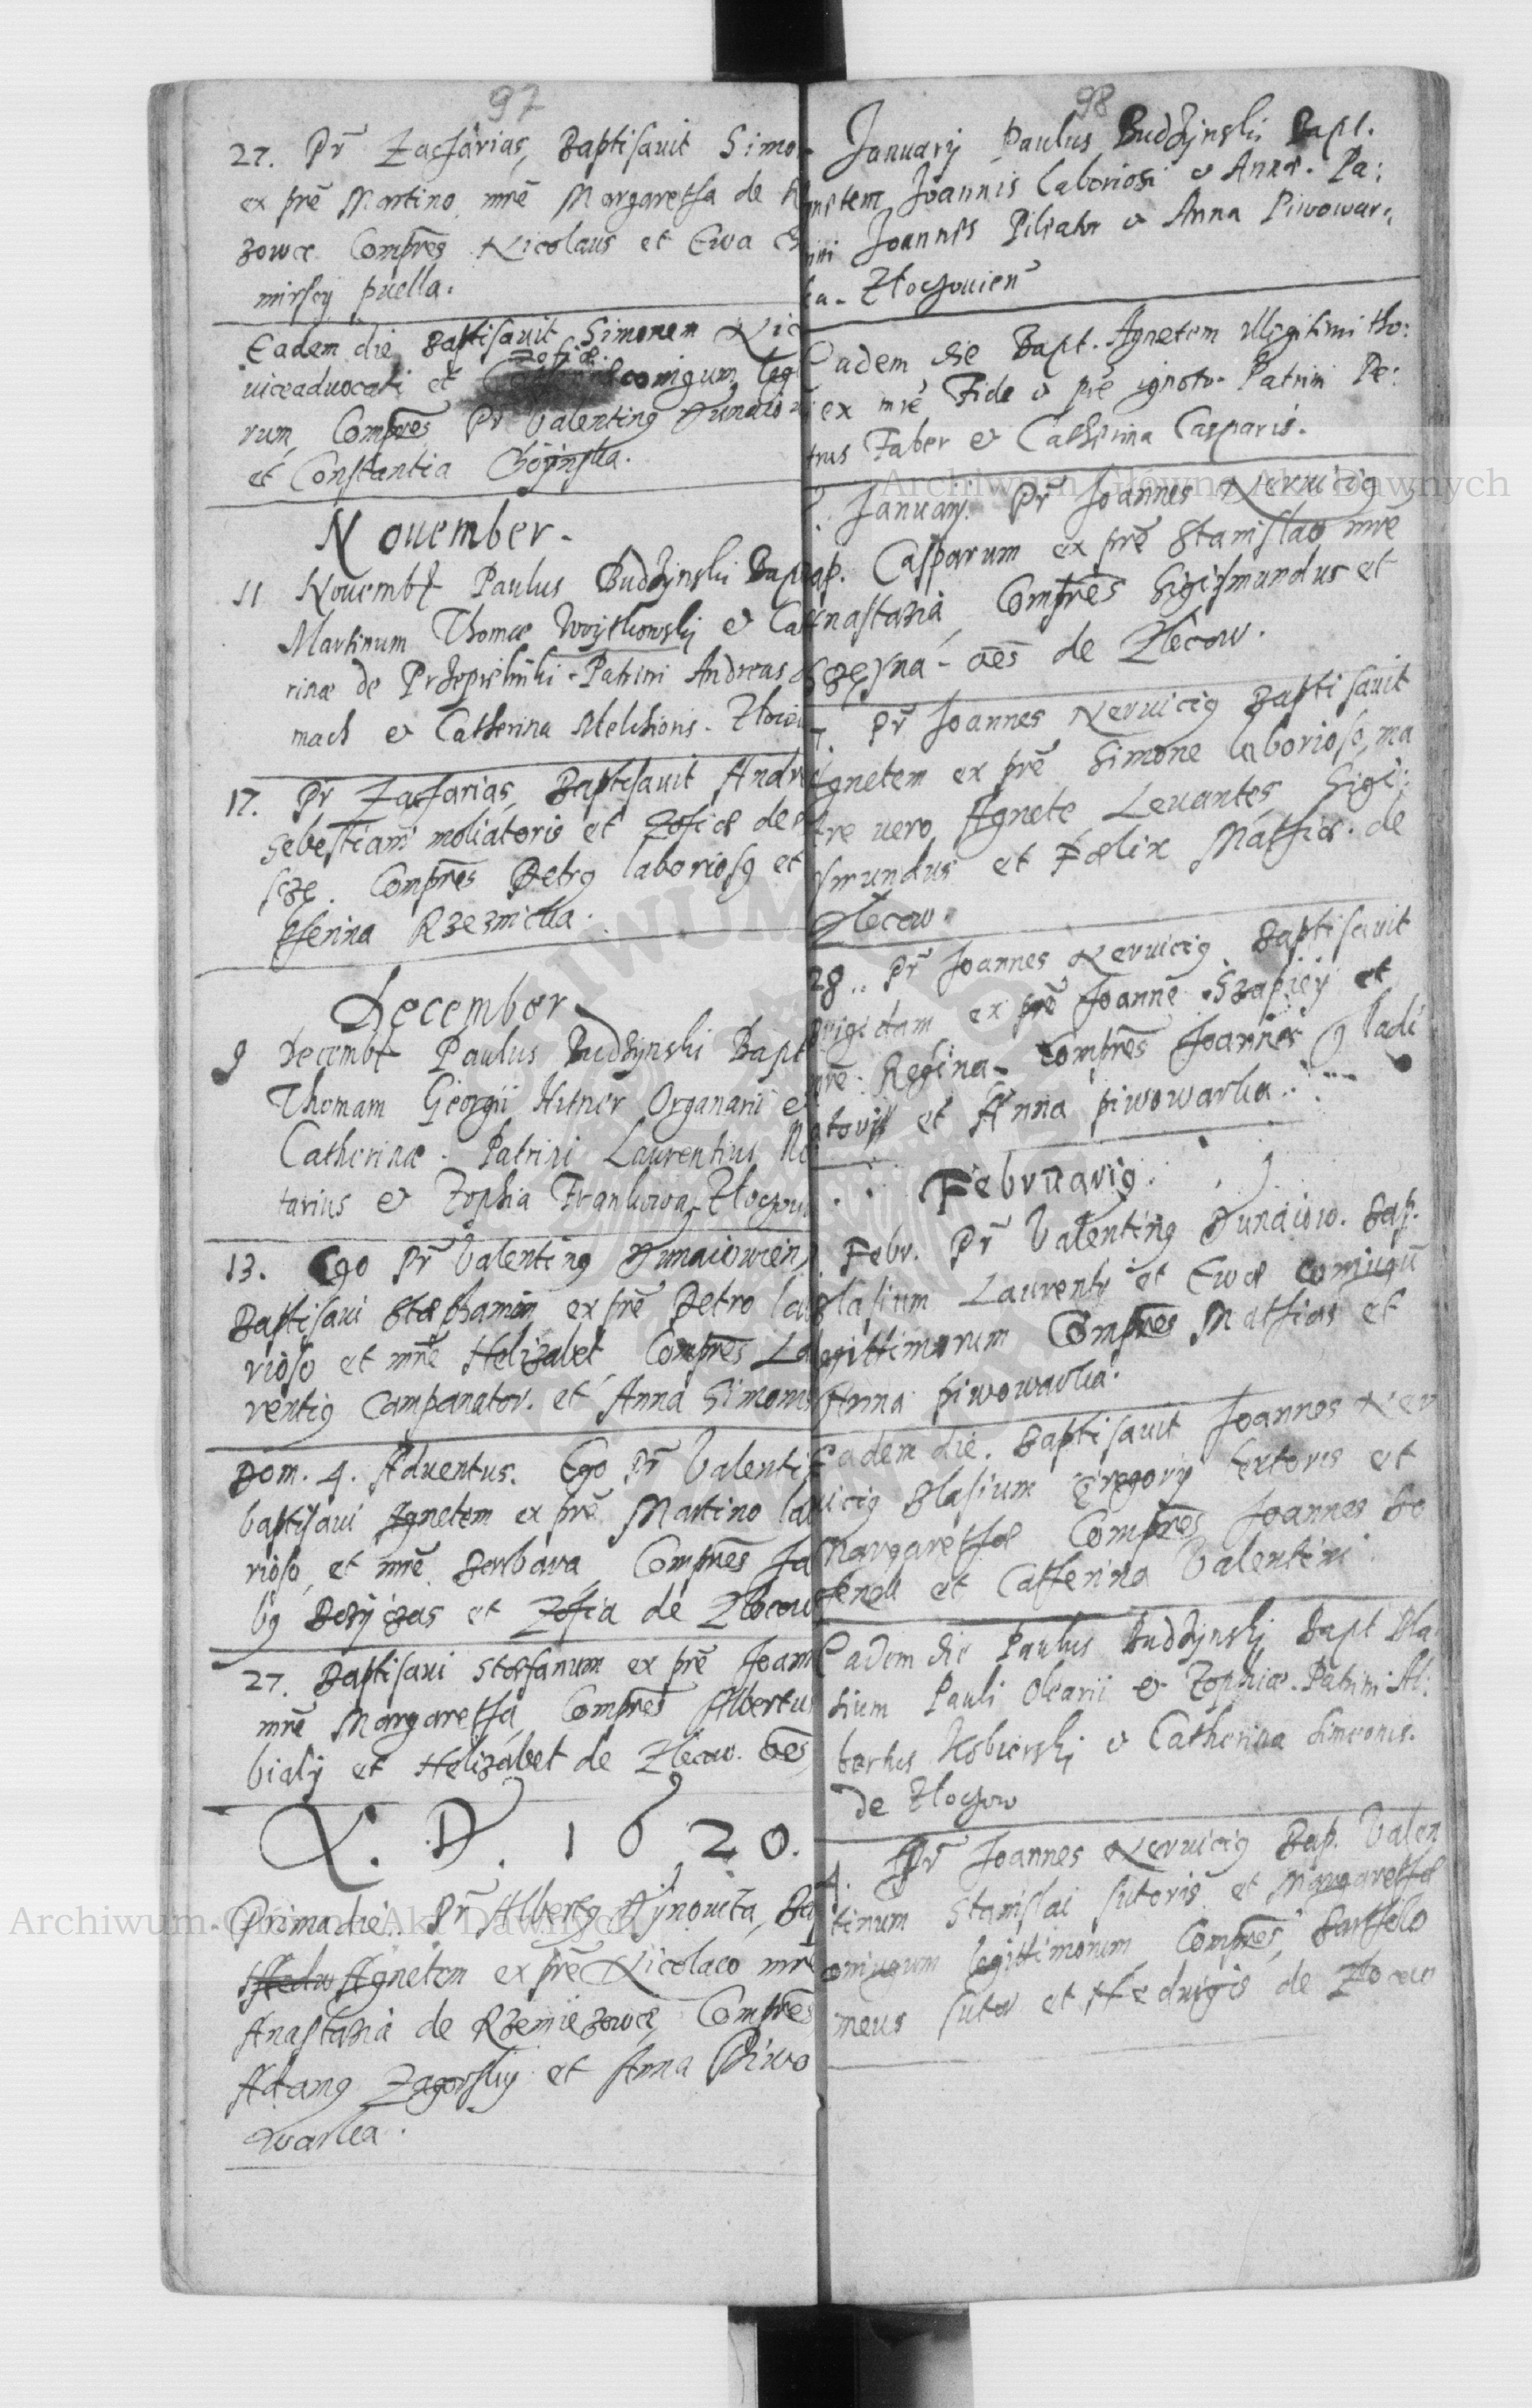 97
27. Pr Zacharias, Baptisavit Simo
ex pre Martino, mre Margaretha de
zowce Compres Nicolaus et Ewa
mirscy puella.
Eadem die Baptisavit Simonem Nic
Zofiæ.
viceadvocati et coniugum leg
rum, Compres Pr Valentinq Dunaiow
et Constantia Choynska.
November.
11 Novembr Paulus Budzynski Bap
Martinum Thomæ Woytkowsky & Cat
rinæ de Patrini Andreas
mach & Catherina Melchioris. Zloczo
17. Pr Zacharias, Baptisavit Andr
Sebestiani moliatoris et Zofiæ de
Compres Petrq laboriosq et
therina Rzeznicka.
December
9 Decembr Paulus Budzynski Bapt
Thomam Georgii Hitner Organarii &
Catherinæ. Patrini Laurentius No
tarius & Zophia Frankowa Zloczow
13. Ego Pr Valentinq Dunaiowien
Baptisavi Stephanum ex pre Petro lab
rioso et mre Helizabet Compres La
rentiq Campanator. et Anna Simonis
Dom. 4. Adventus. Ego Pr Valenti
baptisavi Agnetem ex pre Martino lab
rioso, et mre Barbara, Compres Ja
bq et Zofia de Zlocow
27. Baptisavi Stefanum ex pre Joan
mre Margaretha, Compres Albertus
bialy et Helizabet de Zlecow. oes
A. D. 1620.
Prima die. Pr Albertq Bap
Hedw Agnetem ex pre Nicolaeo mre
Anastazia de Rzemiezowce, Compres
Adamq Zagorsky et Anna Piwo
warka.
98
January Paulus Budzynski Bapt.
netem Joannis laboriosi & Annæ. Pa:
ini Joannes Pileator & Anna Piwowar:
ka. Zloczovien
Eadem die Bapt. Agnetem illegitimi tho:
ex mre Fide & pre ignoto. Patrini Pe:
trus Faber & Catherina Casparis.
January. Pr Joannes Nervicig
ap. Casparum ex pre Stanislao mre
nastazia, Compres Sigismundus et
oes de Zlecow.
7 Pr Joannes Nervicig Baptisavit
Agnetem ex pre Simone laborioso, ma
tre vero Agnete Levantes Sigi:
smundus et Fælix Mathiæ. de
Zlecow.
28.. Pr Joannes Nervicig Baptisavit
Brigidam ex pre Joanne Szapiey et
mre. Regina. Compres Joannes gladi
atoris et Anna piwowarka.
Februarig.
Febr. Pr Valentinq Dunaiow. Bap.
Blasium Laurenty et Ewæ coniugu
legittimorum Compres Mathias et
Anna piwowarka.
Eadem die. Baptisavit Joannes Ner
vicig Blasium Gregory textoris et
Margarethæ Compres Joannes
et Catherina Valentini
Eadem die Paulus Budzynsky Bapt Bla
sium Pauli Olearii & Zophiæ. Patrini Al:
bertus & Catherina Simeonis.
de Zloczow
4. Pr Joannes Nervicig Bap. Valen
tinum Stanislai sutoris et Margarethæ
coniugum legittimorum, Compres, Bartholo
meus sutor et Hedvigis de Zlocow
Archiwum Główne Akt Dawnych
Archiwum Główne Akt Dawnych